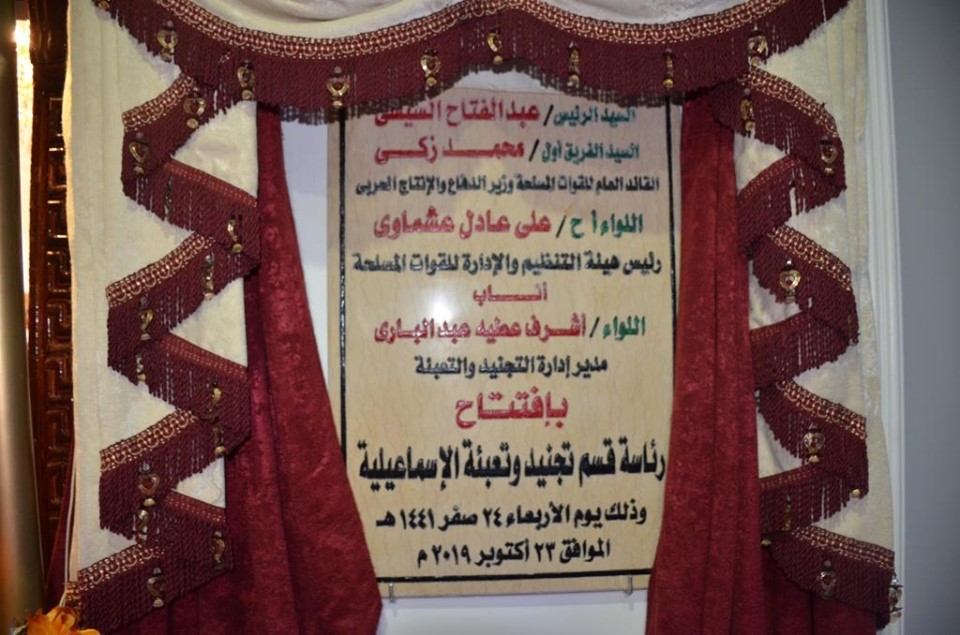 السيد الرئيس / عبدالفتاح السيسى
السيد الفريق أول / محمـــد زكــى
القائد العام للقوات المسلحة وزير الدفاع والإنتاج الحربى
اللواء أ ح / على عادل عشماوى
رئيس هيئة التنظيم والإدارة للقوات المسلحة
أنـــاب
اللواء / أشرف عطيه عبدالبارى
مدير إدارة التجنيد والتعبئة
بإفتتـاح
رئاسة قسم تجنيد وتعبئة الإسماعيلية
وذلك يوم الأربعاء ٢٤ صفر ١٤٤١ هـ
الموافق ٢٣ أكتوبر ٢٠١٩ م